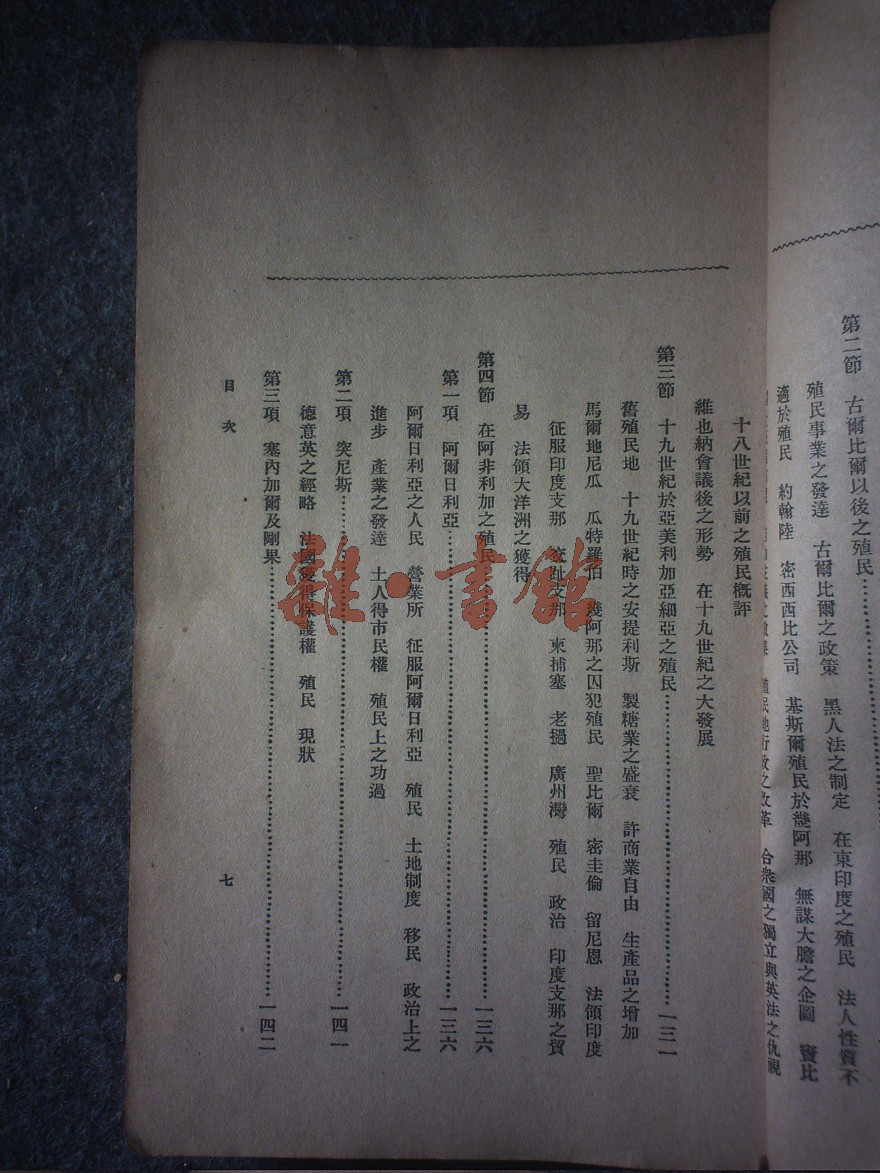 第二節 古爾比爾以後之殖民…………
殖民事業之發達 古爾比爾之政策 黑人法之制定 在東印度之殖民 法人性質不
適於殖民 約翰陸 密西西比公司 基斯爾殖民於幾阿那 無謀大膽之企圖 竇比
殖民地行政之改革 合衆國之獨立與英法之仇視
十八世紀以前之殖民概評
維也納會議後之形勢 在十九世紀之大發展
第三節 十九世紀於亞美利加亞細亞之殖民…………一三一
舊殖民地 十九世紀時之安提利斯 製糖業之盛衰 許商業自由 生產品之增加
馬爾地尼瓜 瓜特羅伯 幾阿那之囚犯殖民 聖比爾 密圭倫 留尼恩 法領印度
征服印度支那 交趾支那 柬捕塞 老撾 廣州灣 殖民 政治 印度支那之貿
易 法領大洋洲之獲得
第四節 在阿非利加之殖民…………一三六
第一項 阿爾日利亞…………一三六
阿爾日利亞之人民 營業所 征服阿爾日利亞 殖民 土地制度 移民 政治上之
進步 產業之發達 土人得市民權 殖民上之功過
第二項 突尼斯…………一四一
德意英之經略 法國獲得保護權 殖民 現狀
第三項 塞內加爾及剛果…………一四二
目次
七
雜·書館